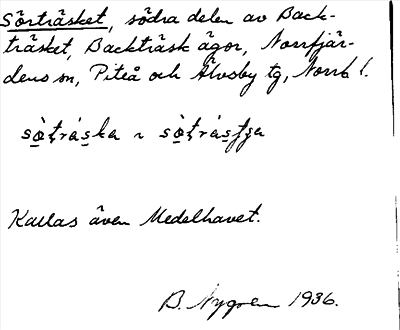 Sörträsket, södra delen av Back-
träsket, Backträsk ägor, Norrfjär-
dens sn, Piteå och Älvsby tg, Norrb l.
Kallas även Medelhavet.
B. Nygren 1936.